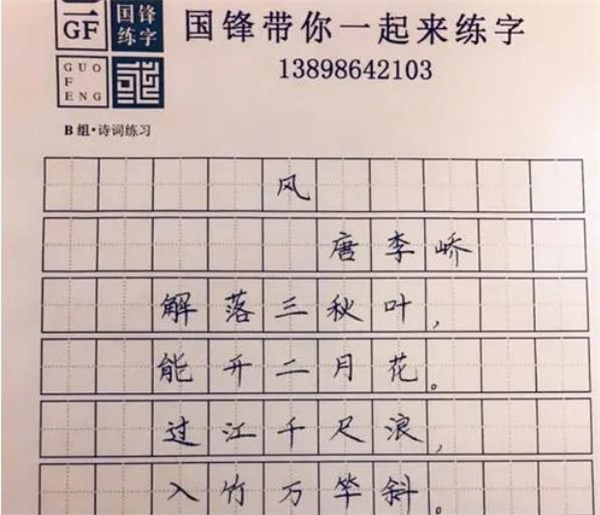 GF
国锋
练字
GUO
F
ENG
国锋带你一起来练字
13898642103
B组·诗词练习
风
唐李峤
解落三秋叶，
能开二月花。
过江千尺浪，
入竹万竿斜。